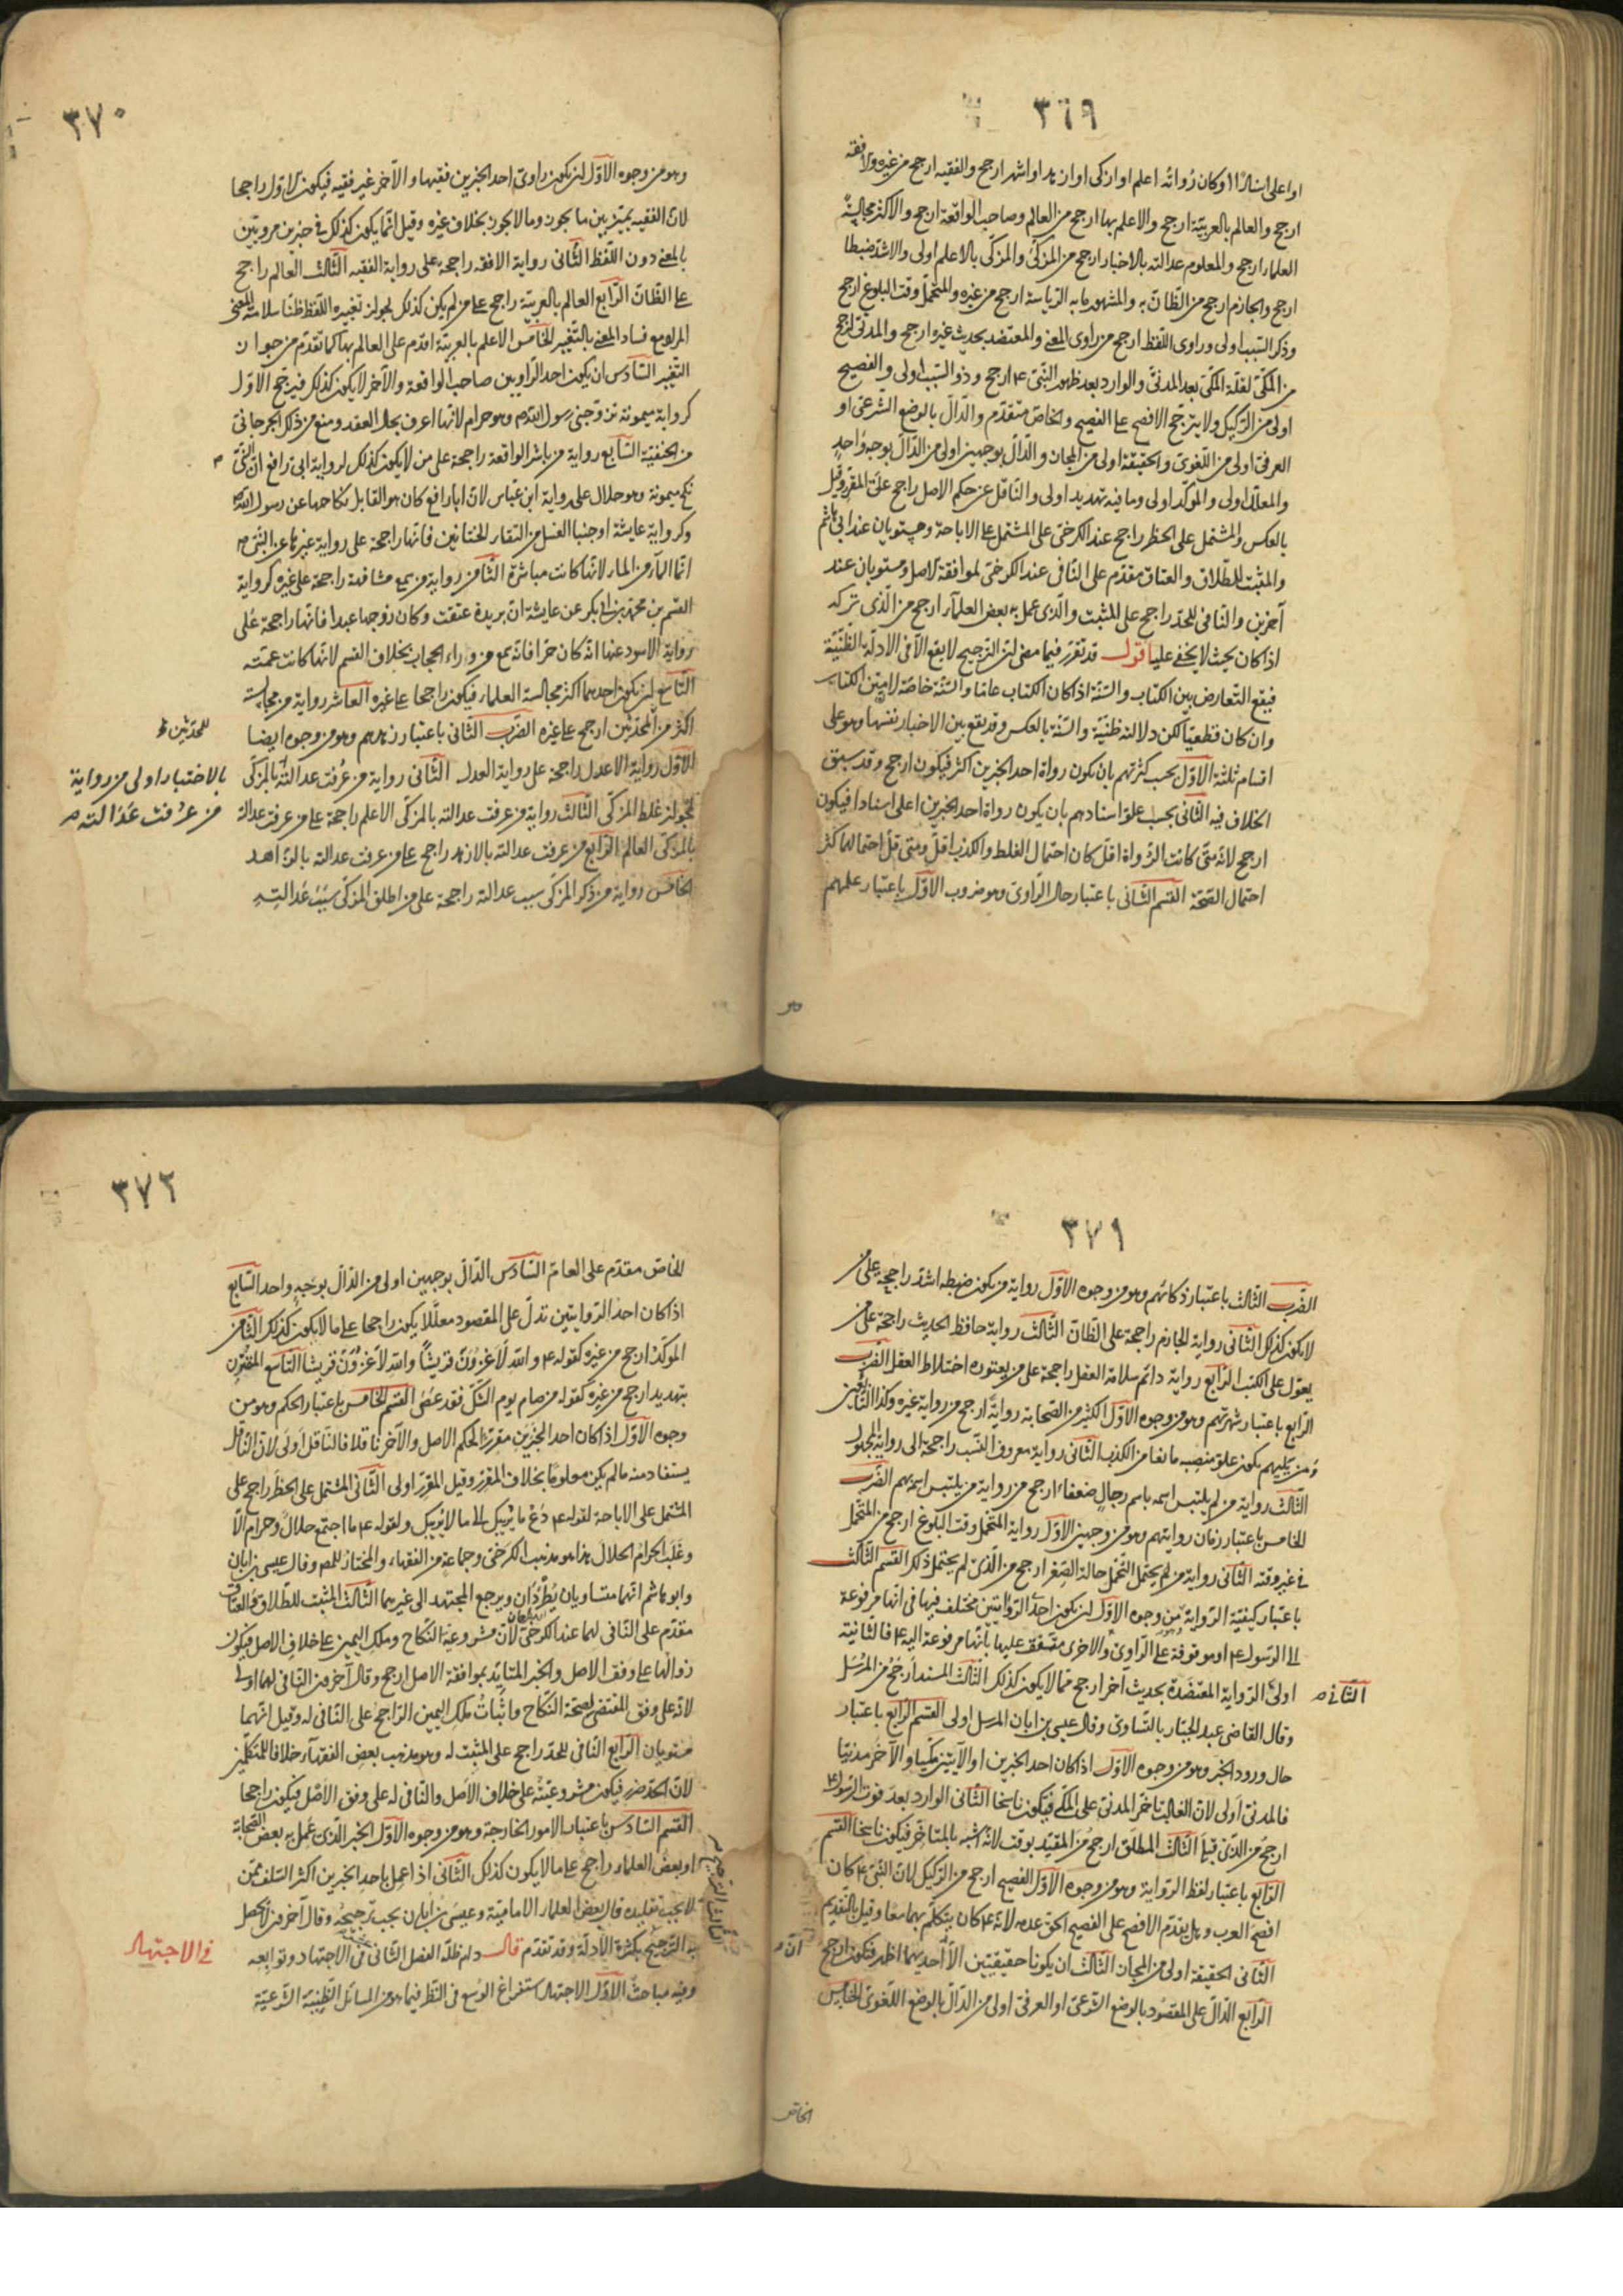 ٣٦٩
او اعلى اسنادا او كان رواته اعلم او ازكى او ازيد او اشهر ارجح والفقيه ارجح من غيره والافقه
ارجح والعالم بالعربيّة ارجح والاعلم بها ارجح من العالم وصاحب الواقعة ارجح والاكثر مجالسة
العلماء ارجح والمعلوم عدالته بالاختبار ارجح من المزكّى والمزكّى بالاعلم اولى والاشدّ ضبطا
ارجح والجازم ارجح من الظّانّ به والمشهور بالرّياسة ارجح من غيره والمتحمّل وقت البلوغ ارجح
وذكر السّبب اولى وراوى اللّفظ ارجح من راوى المعنى والمعتضد بحديث غيره ارجح والمدنىّ ارجح
من المكّىّ لقلّة المكّىّ بعد المدنىّ والوارد بعد ظهور النّبىّ ۴ ارجح وذو السّبب اولى والفصيح
اولى من الرّكيك ولا يترجّح الافصح على الفصيح والخاصّ متقدّم والدّالّ بالوضع الشّرعى او
العرفىّ اولى من اللّغوىّ والحقيقة اولى من المجاز والدّالّ بوجهين اولى من الدّالّ بوجه واحد
والمعلّل اولى والمؤكّد اولى وما فيه تهديد اولى والنّاقل عن حكم الاصل راجح على المقرّر وقيل
بالعكس والمشتمل على الحظر راجح عند الكرخىّ على المشتمل على الاباحة ويستويان عند ابى هاشم
والمثبت للطّلاق والعتاق مقدّم على النّافى عند الكرخىّ لموافقة الاصل ومستويان عند
آخرين والنّافى للحدّ راجح على المثبت والّذى عمل به بعض العلمآء ارجح من الّذى تركه
اذا كان بحيث لا يخفى عليه اقول قد تقرّر فيما مضى انّ التّرجيح لا يقع الّا فى الادلّة الظّنّيّة
فيقع التّعارض بين الكتاب والسّنّة اذا كان الكتاب عامّا والسّنّة خاصّة لانّ متن الكتاب
وان كان قطعيّا لكن دلالته ظنيّة والسّنّة بالعكس وقد يقع بين الاخبار نفسها وهو على
اقسام ثلثة الاوّل بحسب كثرتهم بان يكون رواة احد الخبرين اكثر فيكون ارجح وقد سبق
الخلاف فيه الثّانى بحسب علوّ اسنادهم بان يكون رواة احد الخبرين اعلى اسنادا فيكون
ارجح لانّه متى كانت الرّواة اقلّ كان احتمال الغلط والكذب اقلّ ومتى قلّ احتمالهما كثر
احتمال الصّحّة القسم الثّانى باعتبار حال الرّاوى وهو ضروب الاوّل باعتبار علمهم
وهو
٣٧٠
وهو من وجوه الاوّل ان يكون راوى احد الخبرين فقيها والآخر غير فقيه فيكون الاوّل راجحا
لانّ الفقيه يميّز بين ما يجوز وما لا يجوز بخلاف غيره وقيل انّما يكون كذلك فى خبرين مرويّين
بالمعنى دون اللّفظ الثّانى رواية الافقه راجحة على رواية الفقيه الثّالث العالم راجح
على الظّانّ الرّابع العالم بالعربيّة راجح على من لم يكن كذلك لجواز تغييره اللّفظ ظنّا سلامة المعنى
المراد مع فساد المعنى بالتّغيير الخامس الاعلم بالعربيّة اقدم على العالم بها كما تقدّم من جواز
التّغيير السّادس ان يكون احد الرّاويين صاحب الواقعة والآخر لا يكون كذلك فيرجّح الاوّل
كرواية ميمونة تزوّجنى رسول الله ص وهو حرام لانّها اعرف بحال العقد ومنع من ذلك الجرجانى
من الحنفيّة السّابع رواية من باشر الواقعة راجحة على من لا يكون كذلك لرواية ابى رافع انّ النّبىّ ص
نكح ميمونة وهو حلال على رواية ابن عبّاس لانّ ابا رافع كان هو القابل نكاحها عن رسول الله ص
وكرواية عايشة اوجبنا الغسل من التقاء الختانين فانّها راجحة على رواية غيرها عن النّبى ص
انّما المآء من المآء لانّها كانت مباشرة الثّامن رواية من سمع مشافهة راجحة على غيره كرواية
القسم بن محمّد بن ابى بكر عن عايشة انّ بريدة عتقت وكان زوجها عبدا فانّها راجحة على
رواية الاسود عنها انّه كان حرّا فانّه سمع من وراء الحجاب بخلاف القسم لانّها كانت عمّته
التّاسع ان يكون احدهما اكثر مجالسة العلماء فيكون راجحا على غيره العاشر رواية من مجالسته
اكثر من المحدّثين ارجح على غيره الضّرب الثّانى باعتبار زهدهم وهو من وجوه ايضا
للمحدّثين ظ
الاوّل رواية الاعدل راجحة على رواية العدل الثّانى رواية من عُرفت عدالتُه بالمزكّى
بالاختبار اولى من رواية
من عرفت عدالته ص
لجواز غلط المزكّى الثّالث رواية من عرفت عدالته بالمزكّى الاعلم راجحة على من عرفت عدالة
بالمزكّى العالم الرّابع من عرفت عدالته بالازهد راجح على من عرفت عدالته بالزّاهد
الخامس رواية من ذكر المزكّى سبب عدالته راجحة على من اطلق المزكّى سبب عدالته
٣٧١
الضّرب الثّالث باعتبار ذكائهم وهو من وجوه الاوّل رواية من يكون ضبطه اشدّ راجحة على من
لا يكون كذلك الثّانى رواية الجازم راجحة على الظّانّ الثّالث رواية حافظ الحديث راجحة على من
يعوّل على الكتب الرّابع رواية دائم سلامة العقل راجحة على من يعتوره اختلاط العقل الضّرب
الرّابع باعتبار شهرتهم وهو من وجوه الاوّل الكثير من الصّحابة روايةً ارجح من رواية غيره وكذا التّابعين
ومن يليهم يكون علوّ منصبه مانعا من الكذب الثّانى رواية معروف النّسب راجحة الى رواية المجهول
الثّالث رواية من لم يلتبس اسمه باسم رجال ضعفاء ارجح من رواية من يلتبس اسمه بهم الضّرب
الخامس باعتبار زمان روايتهم وهو من وجهين الاوّل رواية المتحمّل وقت البلوغ ارجح من المتحمّل
فى غير وقته الثّانى رواية من لم يحتمل التّحمّل حالة الصّغر ارجح من الّذى لم يحتمل ذلك القسم الثّالث
باعتبار كيفيّة الرّواية من وجوه الاوّل ان يكون احدى الرّوايتين مختلف فيها فى انّها مرفوعة
الى الرّسول ۴ او موقوفة على الرّاوى والاخرى متّفق عليها بانّها مرفوعة اليه ۴ فالثانية
اولى الرّواية المعتضدة بحديث آخر ارجح ممّا لا يكون كذلك الثّالث المسند ارجح من المرسل
الثّانى ص
وقال القاضى عبد الجبّار بالتّساوى وقال عيسى بن ابان المرسل اولى القسم الرّابع باعتبار
حال ورود الخبر وهو من وجوه الاوّل اذا كان احد الخبرين او الآيتين مكّيا والآخر مدنيّا
فالمدنىّ اولى لانّ الغالب تاخّر المدنىّ على المكّى فيكون ناسخا الثّانى الوارد بعد قوّت الرّسول ۴
ارجح من الّذى قبلها الثّالث المطلق ارجح من المقيّد بوقت لانّه اشبه بالمتاخّر فيكون ناسخا القسم
الرّابع باعتبار لفظ الرّواية وهو من وجوه الاوّل الفصيح ارجح من الرّكيك لانّ النّبىّ ۴ كان
افصح العرب وهل يقدّم الافصح على الفصيح الحقّ عدمه لانّه ۴ كان يتكلّم بهما معًا وقيل بالتّقديم
الثّانى الحقيقة اولى من المجاز الثّالث ان يكونا حقيقيّين الّا احديهما اظهر فتكون ارجح
انّ ص
الرّابع الدّالّ على المقصود بالوضع الشّرعى او العرفىّ اولى من الدّالّ بالوضع اللّغوىّ الخامس
الخاصّ
٣٧٢
الخاصّ مقدّم على العامّ السّادس الدّالّ بوجهين اولى من الدّالّ بوجهٍ واحد السّابع
اذا كان احد الرّوايتين تدلّ على المقصود معلّلا يكون راجحا على ما لا يكون كذلك الثّامن
المؤكّد ارجح من غيره كقوله ۴ والله لَاَغزونّ قريشاً والله لَاَغزونّ قريشا التّاسع المقترن
بتهديد ارجح من غيره كقوله من صام يوم الشّكّ فقد عصى القسم الخامس باعتبار الحكم وهو من
وجوه الاوّل اذا كان احد الخبرين مقرّرًا لحكم الاصل والآخر ناقلا فالنّاقل اولى لانّ النّاقل
يستفاد منه ما لم يكن معلومًا بخلاف المقرّر وقيل المقرّر اولى الثّانى المشتمل على الحظر راجح على
المشتمل على الاباحة لقوله ۴ دَعْ ما يُريبك الى ما لا يُريبك ولقوله ۴ ما اجتمع حلالٌ وحرام الّا
وغَلَب الحرام الحلال هذا هو مذهب الكرخىّ وجماعة من الفقهاء والمختار للمص وقال عيسى بن ابان
وابو هاشم انّهما متساويان يُطرحان ويرجع المجتهد الى غيرهما الثّالث المثبت للطّلاق والعتاق
مقدّم على النّافى لهما عند الكرخىّ لانّ مشروعيّة النّكاح وملك اليمين على خلاف الاصل فيكون
زوالهما على وفق الاصل والخبر المتايّد بموافقة الاصل ارجح وقال آخرون النّافى لهما اولى
لانّه على وفق المقتضى لصحّة النّكاح واثبات ملك اليمين الرّاجح على النّافى له وقيل انّهما
مستويان الرّابع النّافى للحدّ راجح على المثبت له وهو مذهب بعض الفقهآء خلافا للمتكلّمين
لانّ الحدّ ضرر فيكون مشروعيّته على خلاف الاصل والنّافى له على وفق الاصل فيكون راجحا
القسم السّادس باعتبار الامور الخارجة وهو من وجوه الاوّل الخبر الّذى عمل به بعض الصّحابة
او بعض العلماء راجح على ما لا يكون كذلك الثّانى اذا عمل باحد الخبرين اكثر السّلف ممّن
لا يجب تقليده قال بعض العلماء الاماميّة وعيسى بن ابان يجب ترجيحه وقال آخرون لا يحصل
به التّرجيح بكثرة الادلّة وقد تقدّم قال دام ظلّه الفصل الثّانى فى الاجتهاد وتوابعه
فى الاجتهاد
وفيه مباحث الاوّل الاجتهاد استفراغ الوسع فى النّظر فيما هو من المسائل الظّنّيّة الشّرعيّة